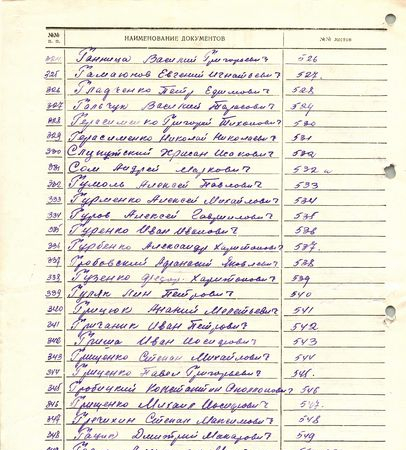 №№ п. п. НАИМЕНОВАНИЕ ДОКУМЕНТОВ №№ листов
324 Ганница Василий Григорьевич 526
325 Гамаюнов Евгений Игнатьевич 527
326 Гладченко Петр Ефимович 528
327 Гальчук Василий Тарасович 529
328 Герасименко Григорий Тихонович 530
329 Герасименко Николай Николаевич 531
330 Хрисан Исакович 532
331 Сом Андрей Маркович 532 а
332 Гумоль Алексей Павлович 533
333 Гурменко Алексей Михайлович 534
334 Гуров Алексей Гаврилович 535
335 Гуренко Иван Иванович 536
336 Гурбенко Александр Харитонович 537
337 Яковлевич 538
338 Гузенко Федор Харитонович 539
339 Гуляк Лин Петрович 540
340 Грицюк Ананий 541
341 Григаник Иван Петрович 542
342 Гриша Иван Иосифович 543
343 Грищенко Степан Михайлович 544
344 Гриценко Павел Григорьевич 545
345 Гробицкий Константин 546
346 Грищенко Михаил Иосифович 547
347 Гречихин Степан Максимович 548
348 Гацик Дмитрий Макарович 549